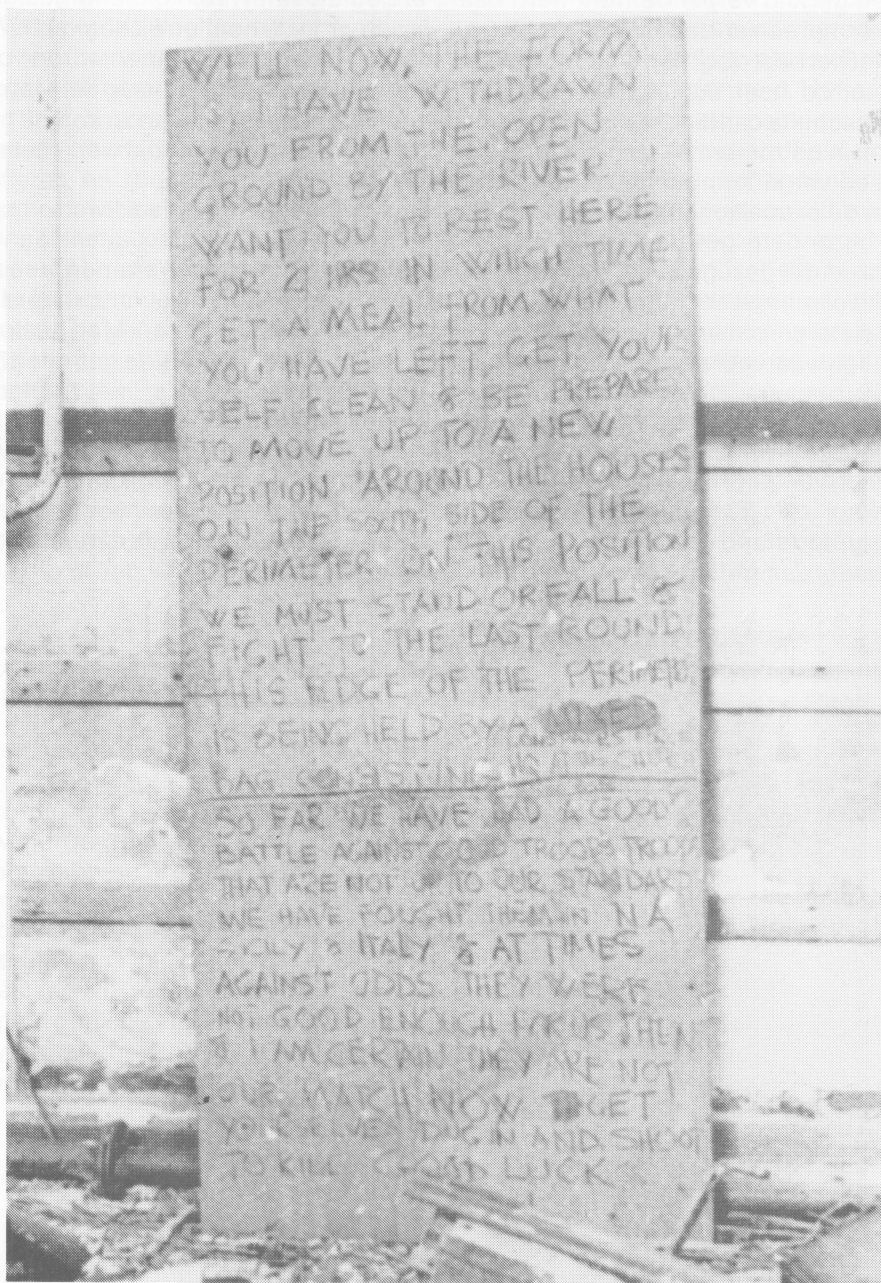 WELL NOW, THE FORM
IS, I HAVE WITHDRAWN
YOU FROM THE OPEN
GROUND BY THE RIVER
WANT YOU TO REST HERE
FOR 2 HRS IN WHICH TIME
GET A MEAL FROM WHAT
YOU HAVE LEFT, GET YOUR
SELF CLEAN & BE PREPARE
TO MOVE UP TO A NEW
POSITION AROUND THE HOUSES
ON THE SOUTH SIDE OF THE
PERIMETER ON THIS POSITION
WE MUST STAND OR FALL &
FIGHT TO THE LAST ROUND
THIS EDGE OF THE PERIMETE
IS BEING HELD BY A MIXED
BAG CONSISTING
SO FAR WE HAVE HAD A GOOD
BATTLE AGAINST GOOD TROOPS TROOPS
THAT ARE NOT UP TO OUR STANDARD
WE HAVE FOUGHT THEM IN N A
SICILY & ITALY & AT TIMES
AGAINST ODDS. THEY WERE
NOT GOOD ENOUGH FOR US THEN
& I AM CERTAIN THEY ARE NOT
OUR MATCH NOW GET
YOURSELVES DUG IN AND SHOOT
TO KILL GOOD LUCK